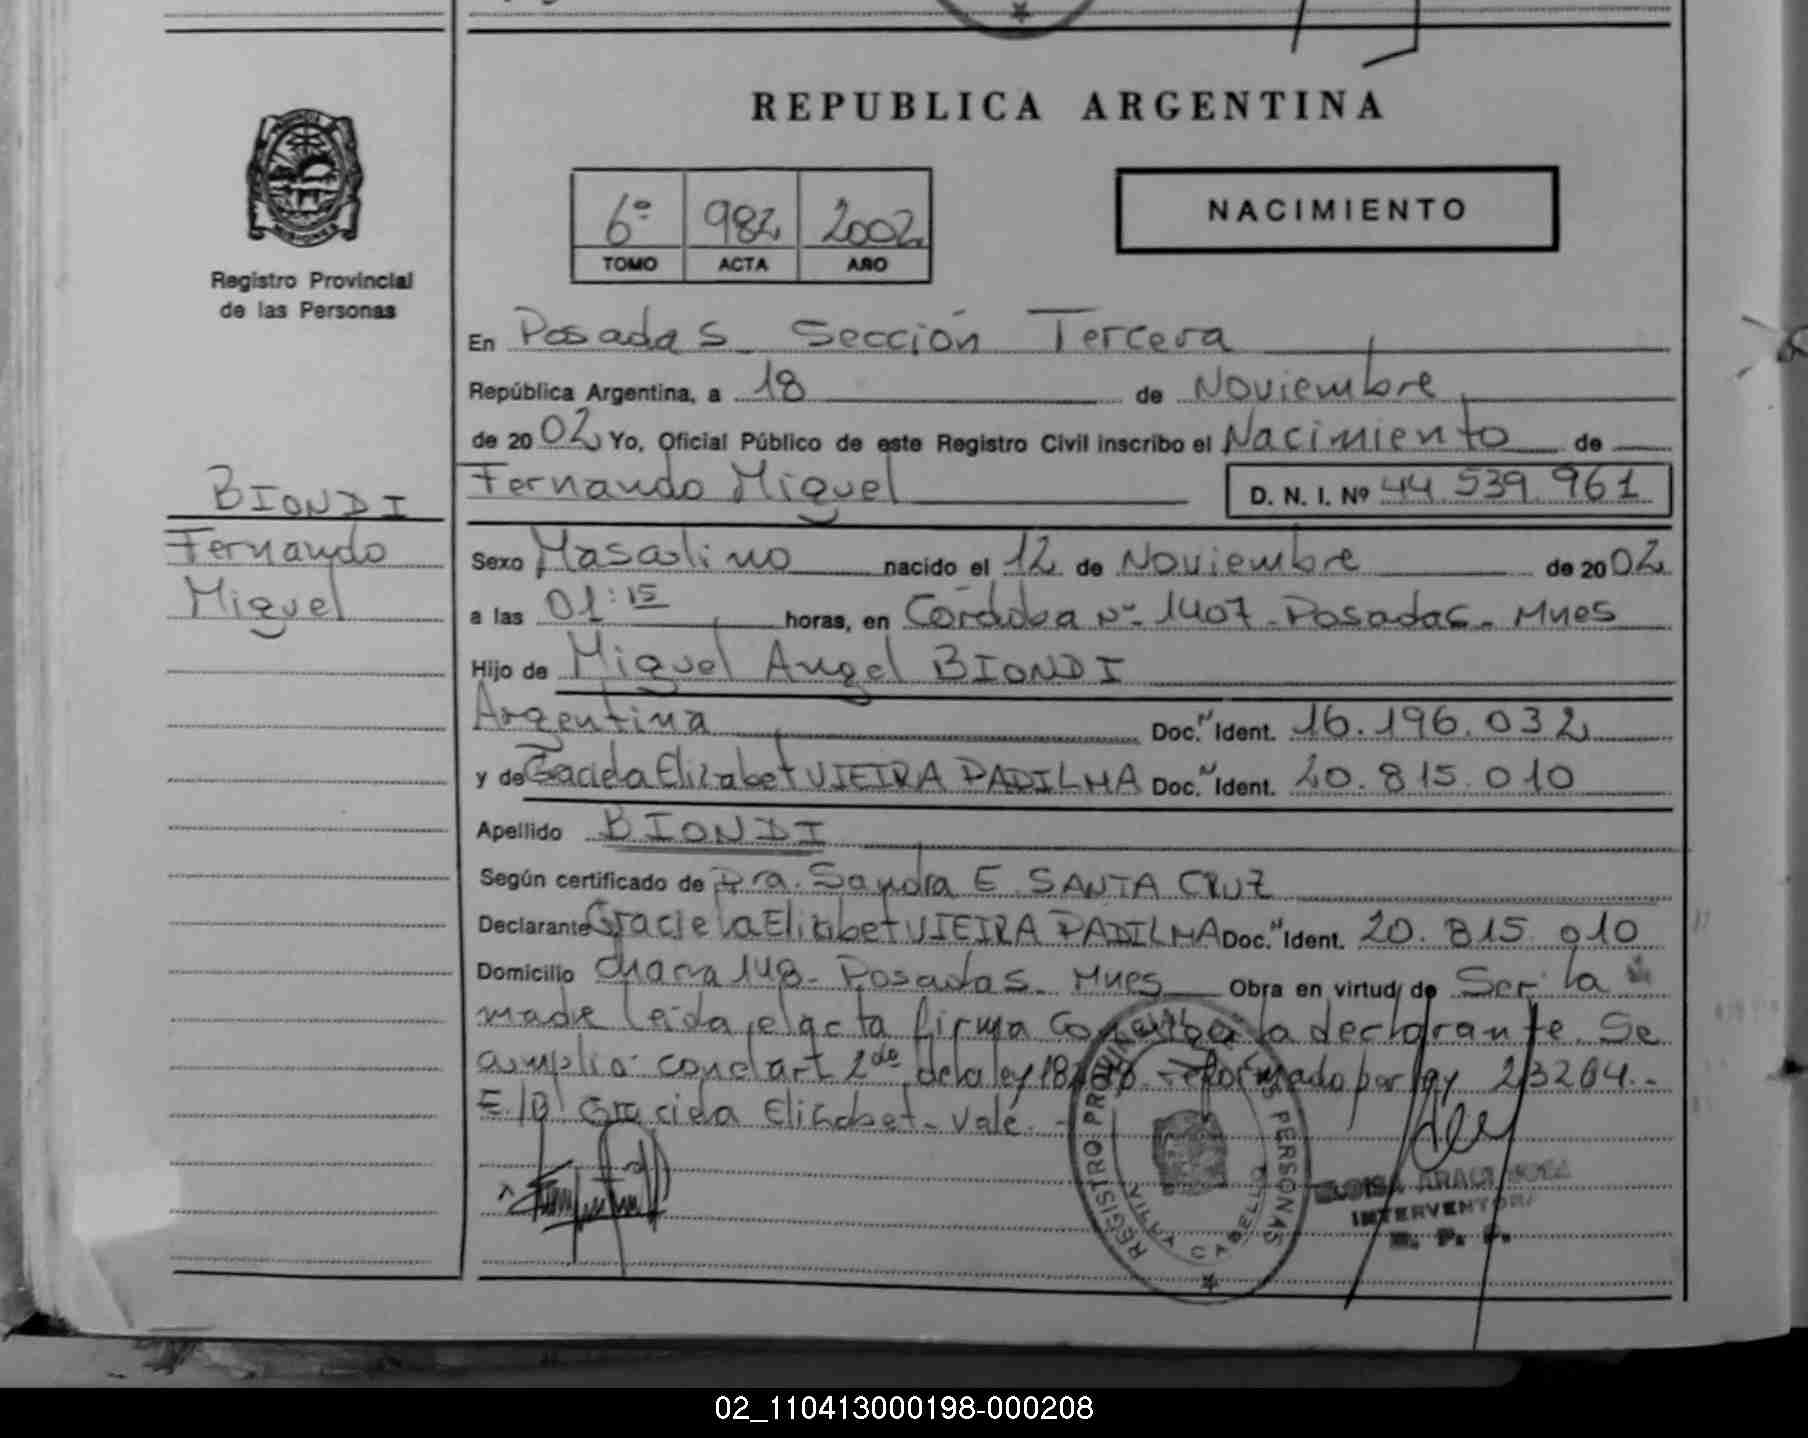 REPUBLICA ARGENTINA
6º 982 2002
TOMO ACTA AÑO
NACIMIENTO
MISIONES
Registro Provincial
de las Personas
En Posadas Sección Tercera
República Argentina, a 18 de Noviembre
de 2002 Yo, Oficial Público de este Registro Civil inscribo el Nacimiento de
Fernando Miguel D. N. I. Nº 44 539 961
BIONDI
Fernando
Miguel
Sexo Masculino nacido el 12 de Noviembre de 2002
a las 01:15 horas, en Córdoba Nº 1407 - Posadas - Mnes
Hijo de Miguel Angel BIONDI
Argentina Doc. N Ident. 16.196.032
y de Graciela Elizabet VIEIRA PADILHA Doc. N Ident. 20.815.010
Apellido BIONDI
Según certificado de Dra. Sandra E. SANTA CRUZ
Declarante Graciela Elizabet VIEIRA PADILHA Doc. N Ident. 20.815.010
Domicilio chacra 148 - Posadas - Mnes Obra en virtud de Ser la
madre leida el acta firma la declarante. Se
amplio conel art 2do dela ley reformado por ley 23264.-
E/B Graciela Elizabet - Vale. -
REGISTRO PROVINCIAL DE LAS PERSONAS
VILLA CABELLO
INTERVENTORA
R. P. P.
02_110413000198-000208